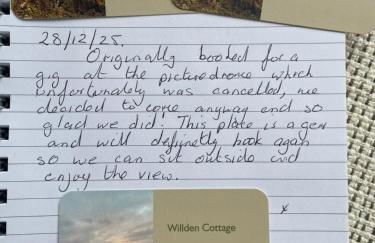 28/12/25.
Originally booked for a
gig at the picturedrome which
unfortunately was cancelled, we
decided to come anyway and so
glad we did! This place is a gem
and will definetly book again
so we can sit outside and
enjoy the view.
Willden Cottage
x